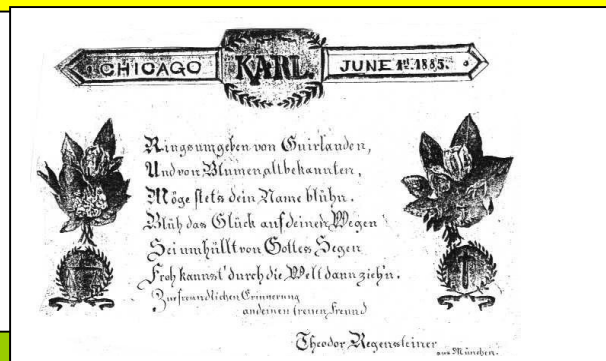 CHICAGO KARL. JUNE 1st 1885.
Ringsumgeben von Guirlanden,
Und von Blumen allbekannten,
Möge stets dein Name blühn.
Blüh das Glück auf deinen Wegen
Sei umhüllt von Gottes Segen
Froh kannst' durch die Welt dann zieh'n.
Zur freundlichen Erinnerung
an deinen treuen Freund
Theodor Regensteiner
aus München.